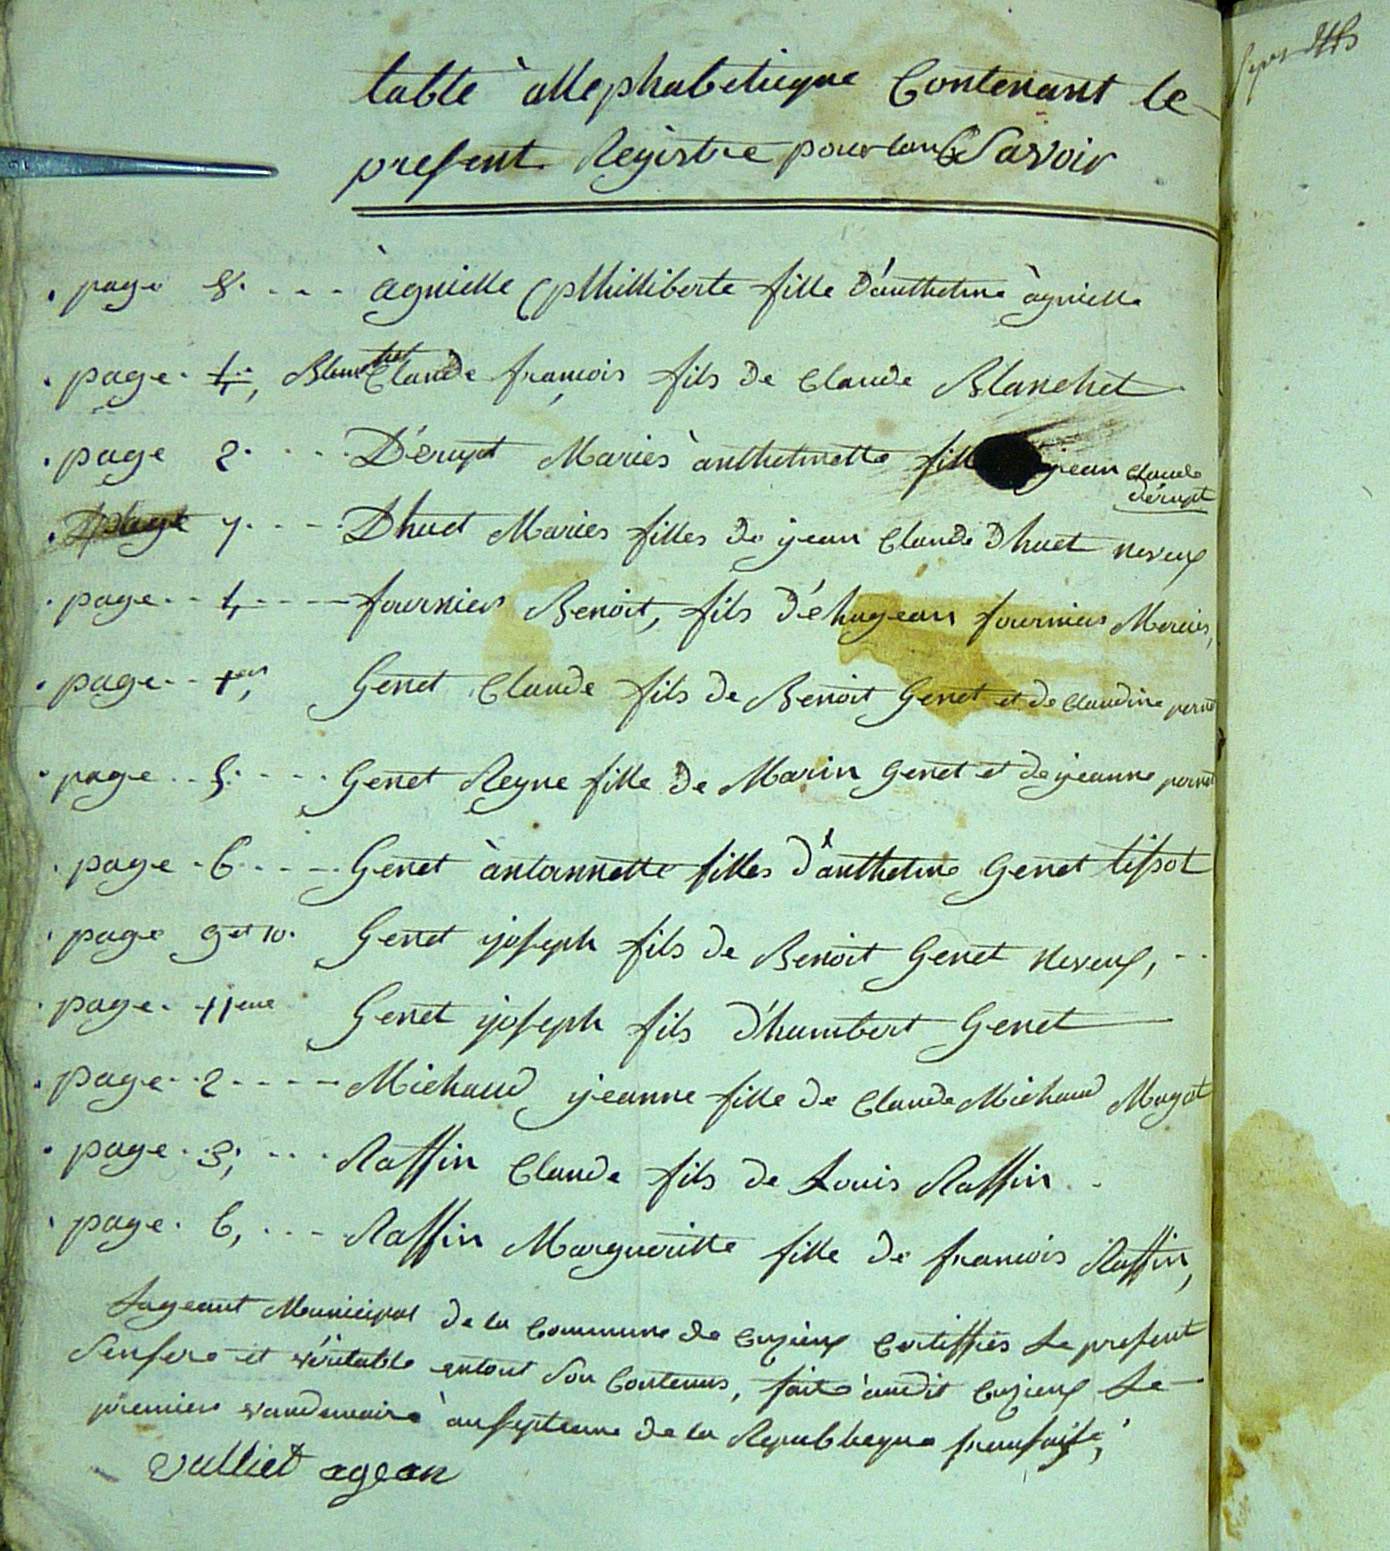 table àllephabetieque Contenant le
present Registre pour lan 6 Savoir
page 8. àgnielle philliberte fille d'anthelme àgnielle
page 4, Blanchet Claude françois fils de Claude Blanchet
page 2. D'érupt Mariès ànthelmette fille jean Claude
dérupt
page 7. Dhuet Maries filles de jean Claude Dhuet neveux
page 4, fournier Benoit, fils d'éhugean fournier Mercier,
page 1er, Genet Claude fils de Benoit Genet et de Claudine pernet
page 5. Genet Reyne fille de Marin Genet et de jeanne pernet
page 6 Genet àntoinnette filles d'anthelme Genet tissot
page 9 et 10. Genet joseph fils de Benoit Genet neveux,
page 11eme Genet joseph fils d'humbert Genet
page 2 Michaud jeanne fille de Claude Michaud Magat
page 3, Raffin Claude fils de Louis Raffin
page 6, Raffin Margueritte fille de francois Raffin,
Lageant Municipal de la Commune de Cuzieux Certiffiès Le present
Sensere et véritable entout Son Contenus, fait àudit Cuzieux Le
premiers vandemaire àn septieme de la Republieque fransaise,
vulliet agean